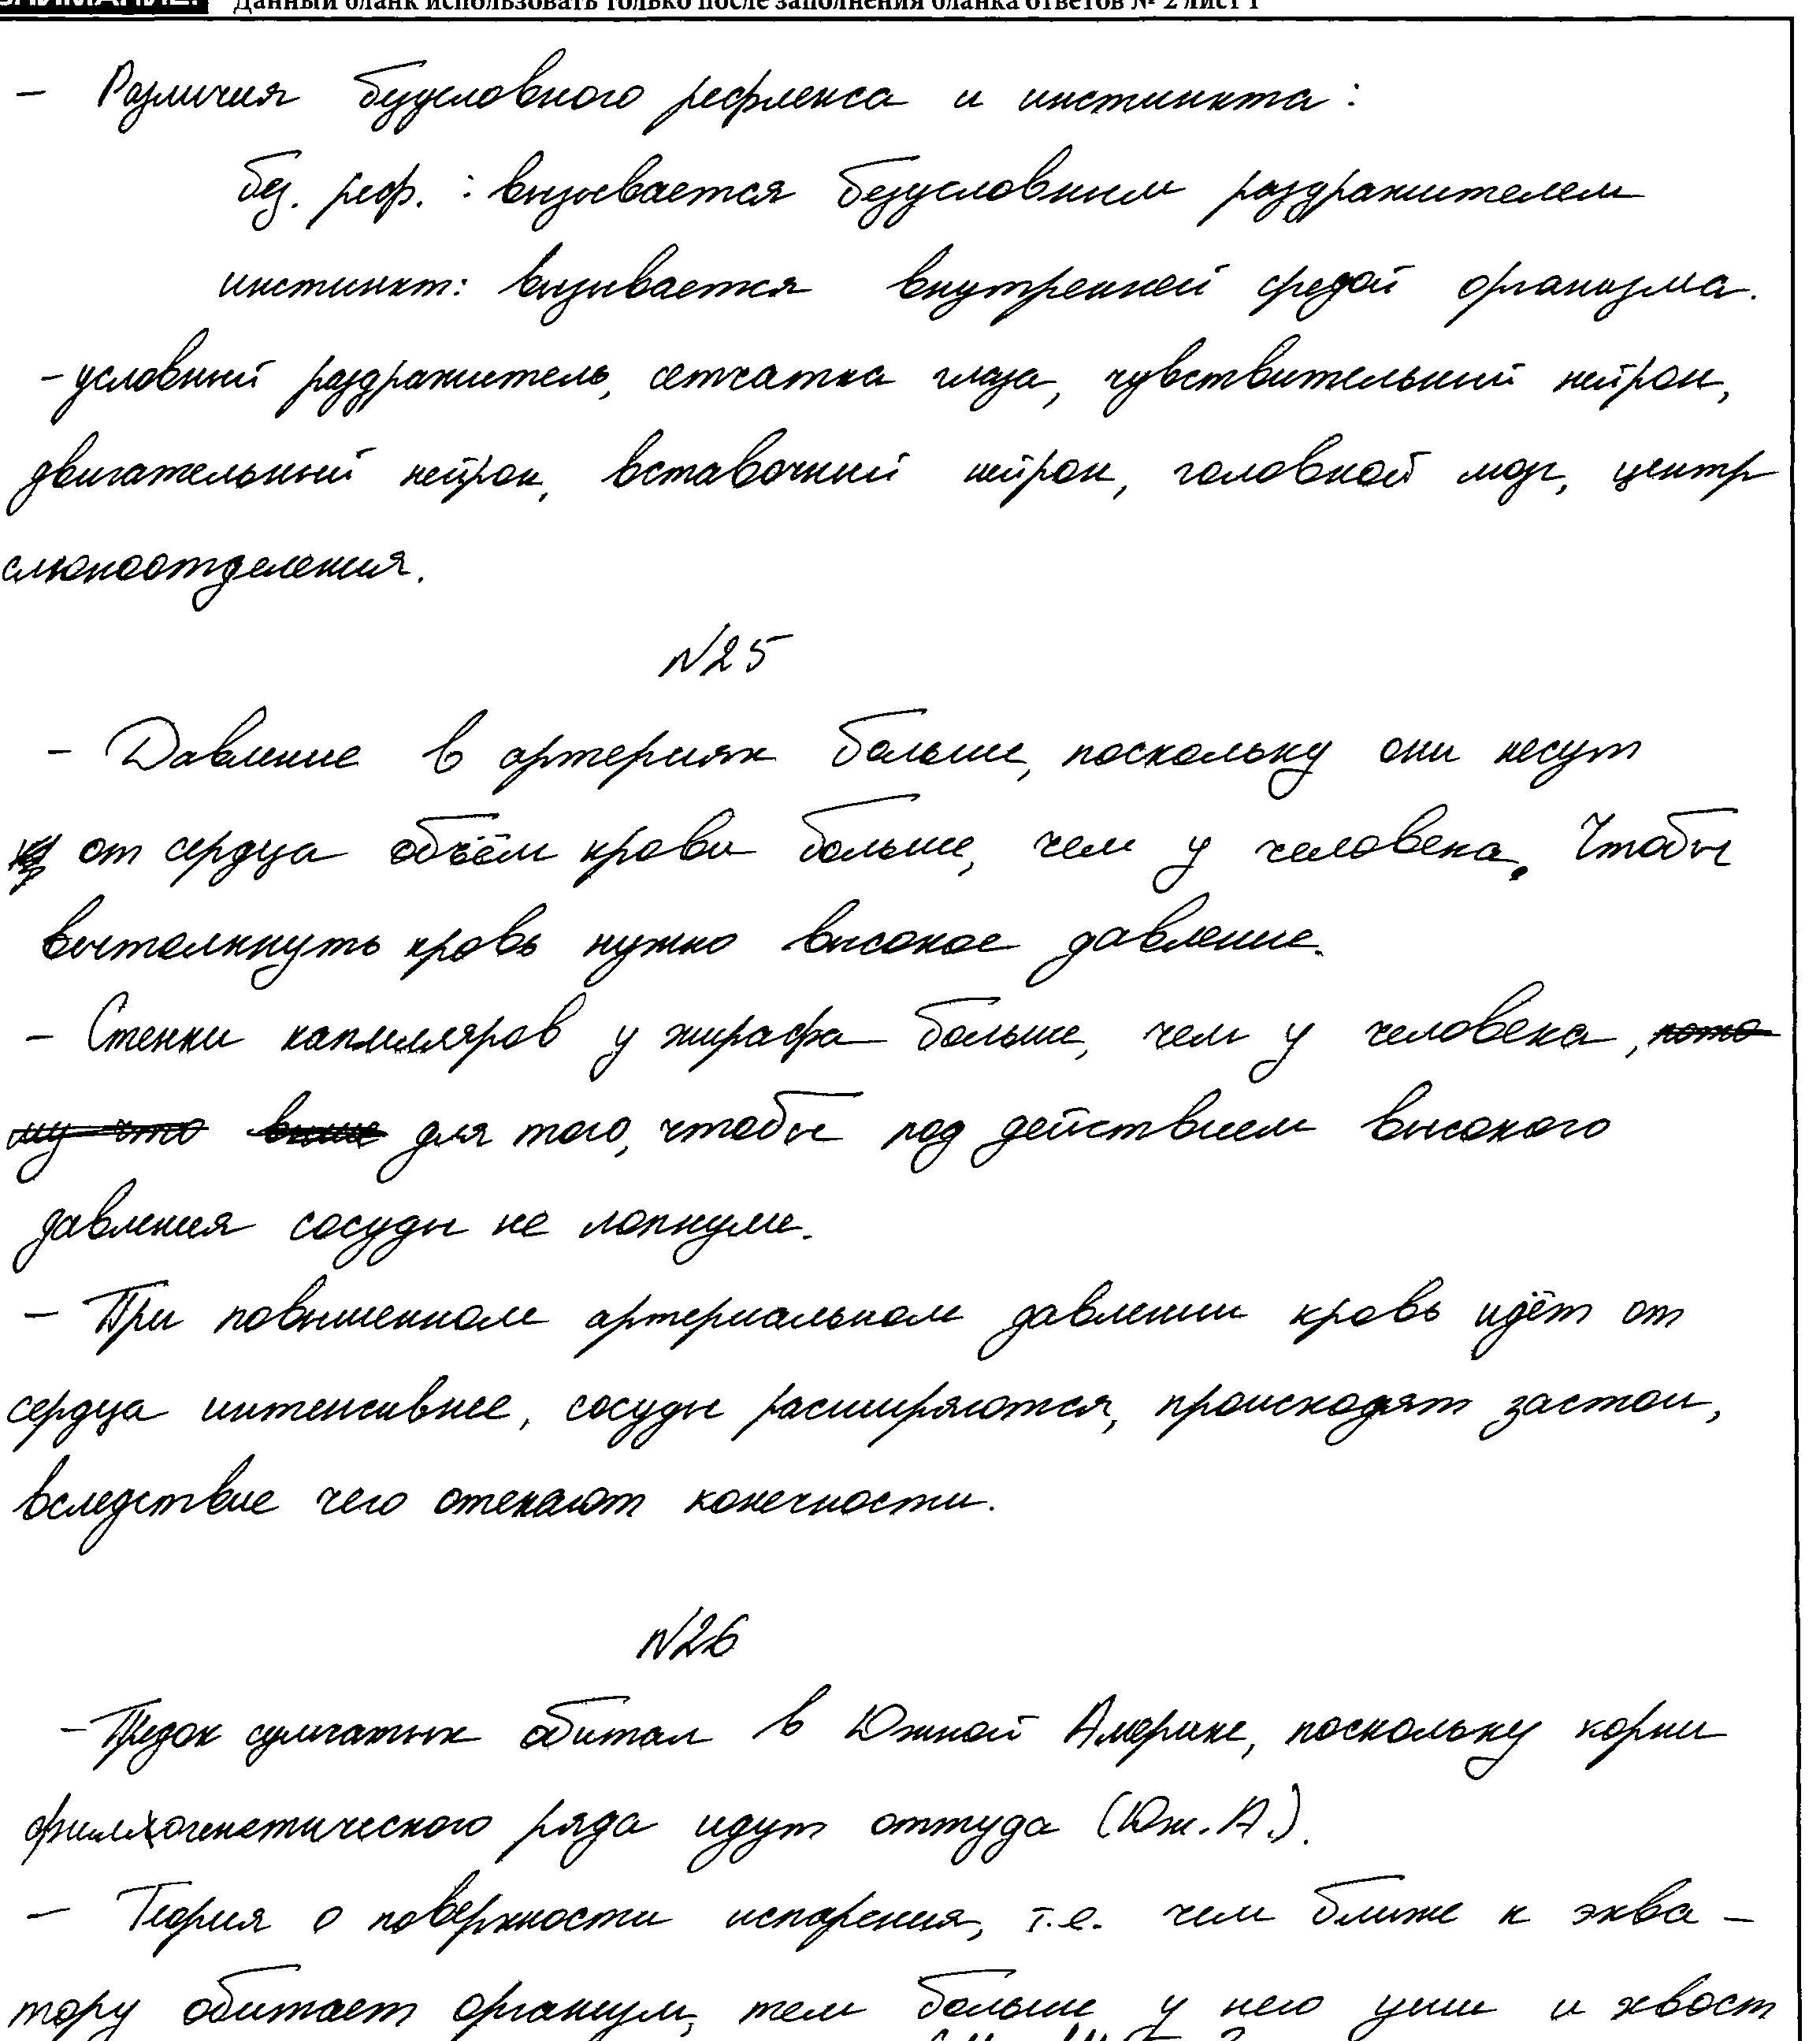 ВНИМАНИЕ! Данный бланк использовать только после заполнения бланка ответов № 2 лист 1
- Различия безусловного рефлекса и инстинкта:
без. реф. : вызывается безусловным раздражителем
инстинкт: вызывается внутренней средой организма.
- условный раздражитель, сетчатка глаза, чувствительный нейрон,
двигательный нейрон, вставочный нейрон, головной мозг, центр
слюноотделения.
N25
- Давление в артериях больше, поскольку они несут
от сердца объём крови больше, чем у человека. Чтобы
вытолкнуть кровь нужно высокое давление.
- Стенки капилляров у жирафа больше, чем у человека, пото
му что выше для того, чтобы под действием высокого
давления сосуды не лопнули.
- При повышенном артериальном давлении кровь идёт от
сердца интенсивнее, сосуды расширяются, происходят застои,
вследствие чего отекают конечности.
N26
- Предок сумчатых обитал в Южной Америке, поскольку корни
филогенетического ряда идут оттуда (Юж. А.).
- Теория о поверхности испарения, т.е. чем ближе к эква-
тору обитает организм, тем больше у него уши и хвост